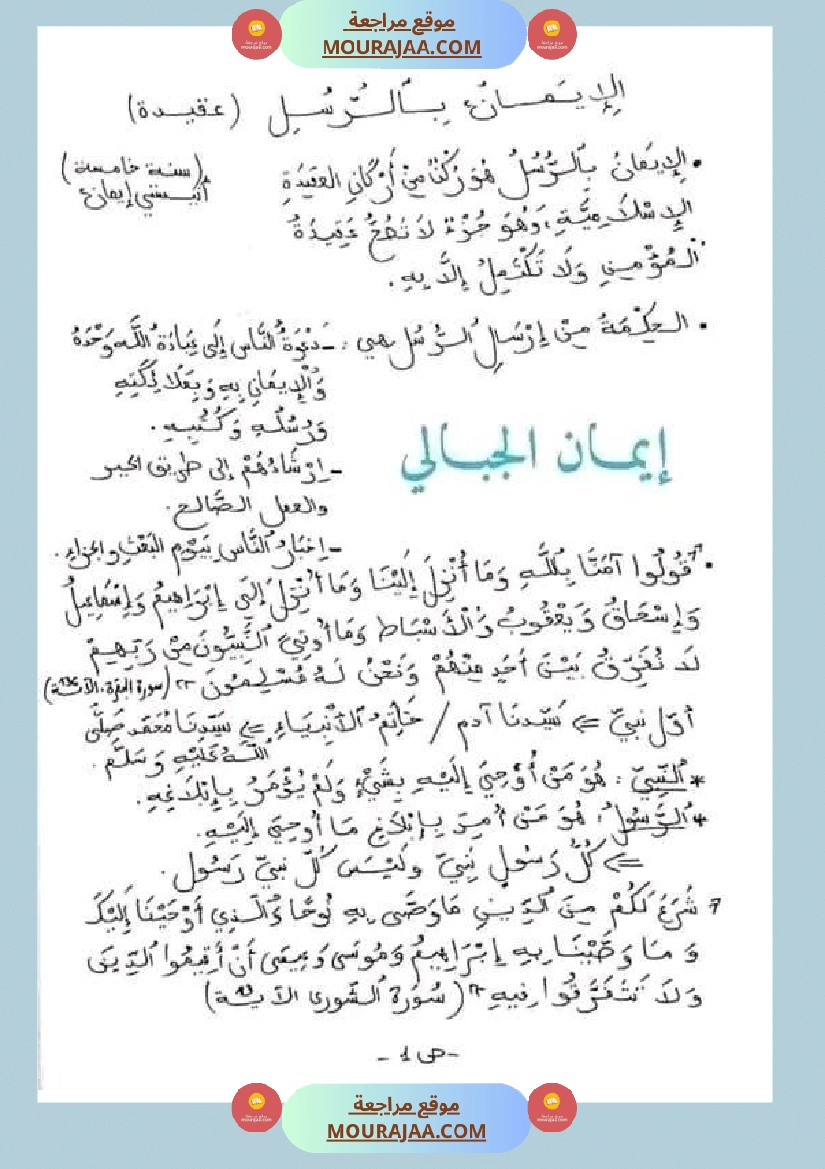 موقع مراجعة
MOURAJAA.COM
الإِيمَانُ بِالرُّسُلِ (عقيدة)
• الإِيمَانُ بِالرُّسُلُ هُوَ رُكْنٌ مِنْ أَرْكَانِ العَقِيدَةِ
(سنة خامسة)
الإِسْلَامِيَّةِ، وَهُوَ جُزْءٌ لَا تَصِحُّ عَقِيدَةُ
الْمُؤْمِنِ وَلَا تَكْتَمِلُ إِلَّا بِهِ.
• الحِكْمَةُ مِنْ إِرْسَالِ الرُّسُلِ هي : - دَعْوَةُ النَّاسِ إِلَى عِبَادَةِ اللَّهِ وَحْدَهُ
وَالْإِيمَانِ بِهِ وَبِمَلَائِكَتِهِ
وَرُسُلِهِ وَكُتُبِهِ.
- إِرْشَادُهُمْ إلى طريق الخير
والعمل الصَّالح.
إيمان الجبالي
- إِخْبَارُ النَّاسِ بِيَوْمِ البَعْثِ والجزاء.
• "قُولُوا آمَنَّا بِاللَّهِ وَمَا أُنْزِلَ إِلَيْنَا وَمَا أُنْزِلَ إِلَى إِبْرَاهِيمُ وَإِسْمَاعِيلُ
وَإِسْحَاقُ وَيَعْقُوبُ وَالْأَسْبَاط وَمَا أُوتِيَ النَّبِيُّونَ مِنْ رَبِّهِمْ
لَا نُفَرِّقُ بَيْنَ أَحَدٍ مِنْهُمْ وَنَحْنُ لَهُ مُسْلِمُونَ" (سورة البقرة، الآية 136)
أوّل نبيّ => سَيِّدنَا آدم / خَاتِمُ الْأَنْبِيَاءِ => سَيِّدنَا مُحَمَّد صَلَّى
اللَّهُ عَلَيْهِ وَسَلَّم.
* النَّبِيّ : هُوَ مَنْ أُوحِيَ إِلَيْهِ بِشَيْءٍ وَلَمْ يُؤْمَرْ بِإِبْلَاغِهِ.
* الرَّسُولُ : هُوَ مَنْ أُمِرَ بِإِبْلَاغِ مَا أُوحِيَ إِلَيْهِ.
=> كُلُّ رَسُولٍ نَبِيّ ولَيْسَ كُلّ نبيّ رَسُول.
"شَرَعَ لَكُمْ مِنَ الدِّينِ مَا وَصَّى بِهِ نُوحًا وَالَّذِي أَوْحَيْنَا إِلَيْكَ
وَمَا وَصَّيْنَا بِهِ إِبْرَاهِيمُ وَمُوسَى وَعِيسَى أَنْ أَقِيمُوا الدِّينَ
وَلَا تَتَفَرَّقُوا فِيهِ" (سُورَة الشّورى الآية 13)
- ص 1 -
موقع مراجعة
MOURAJAA.COM